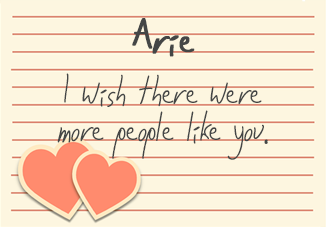 Arie
I wish there were
more people like you.